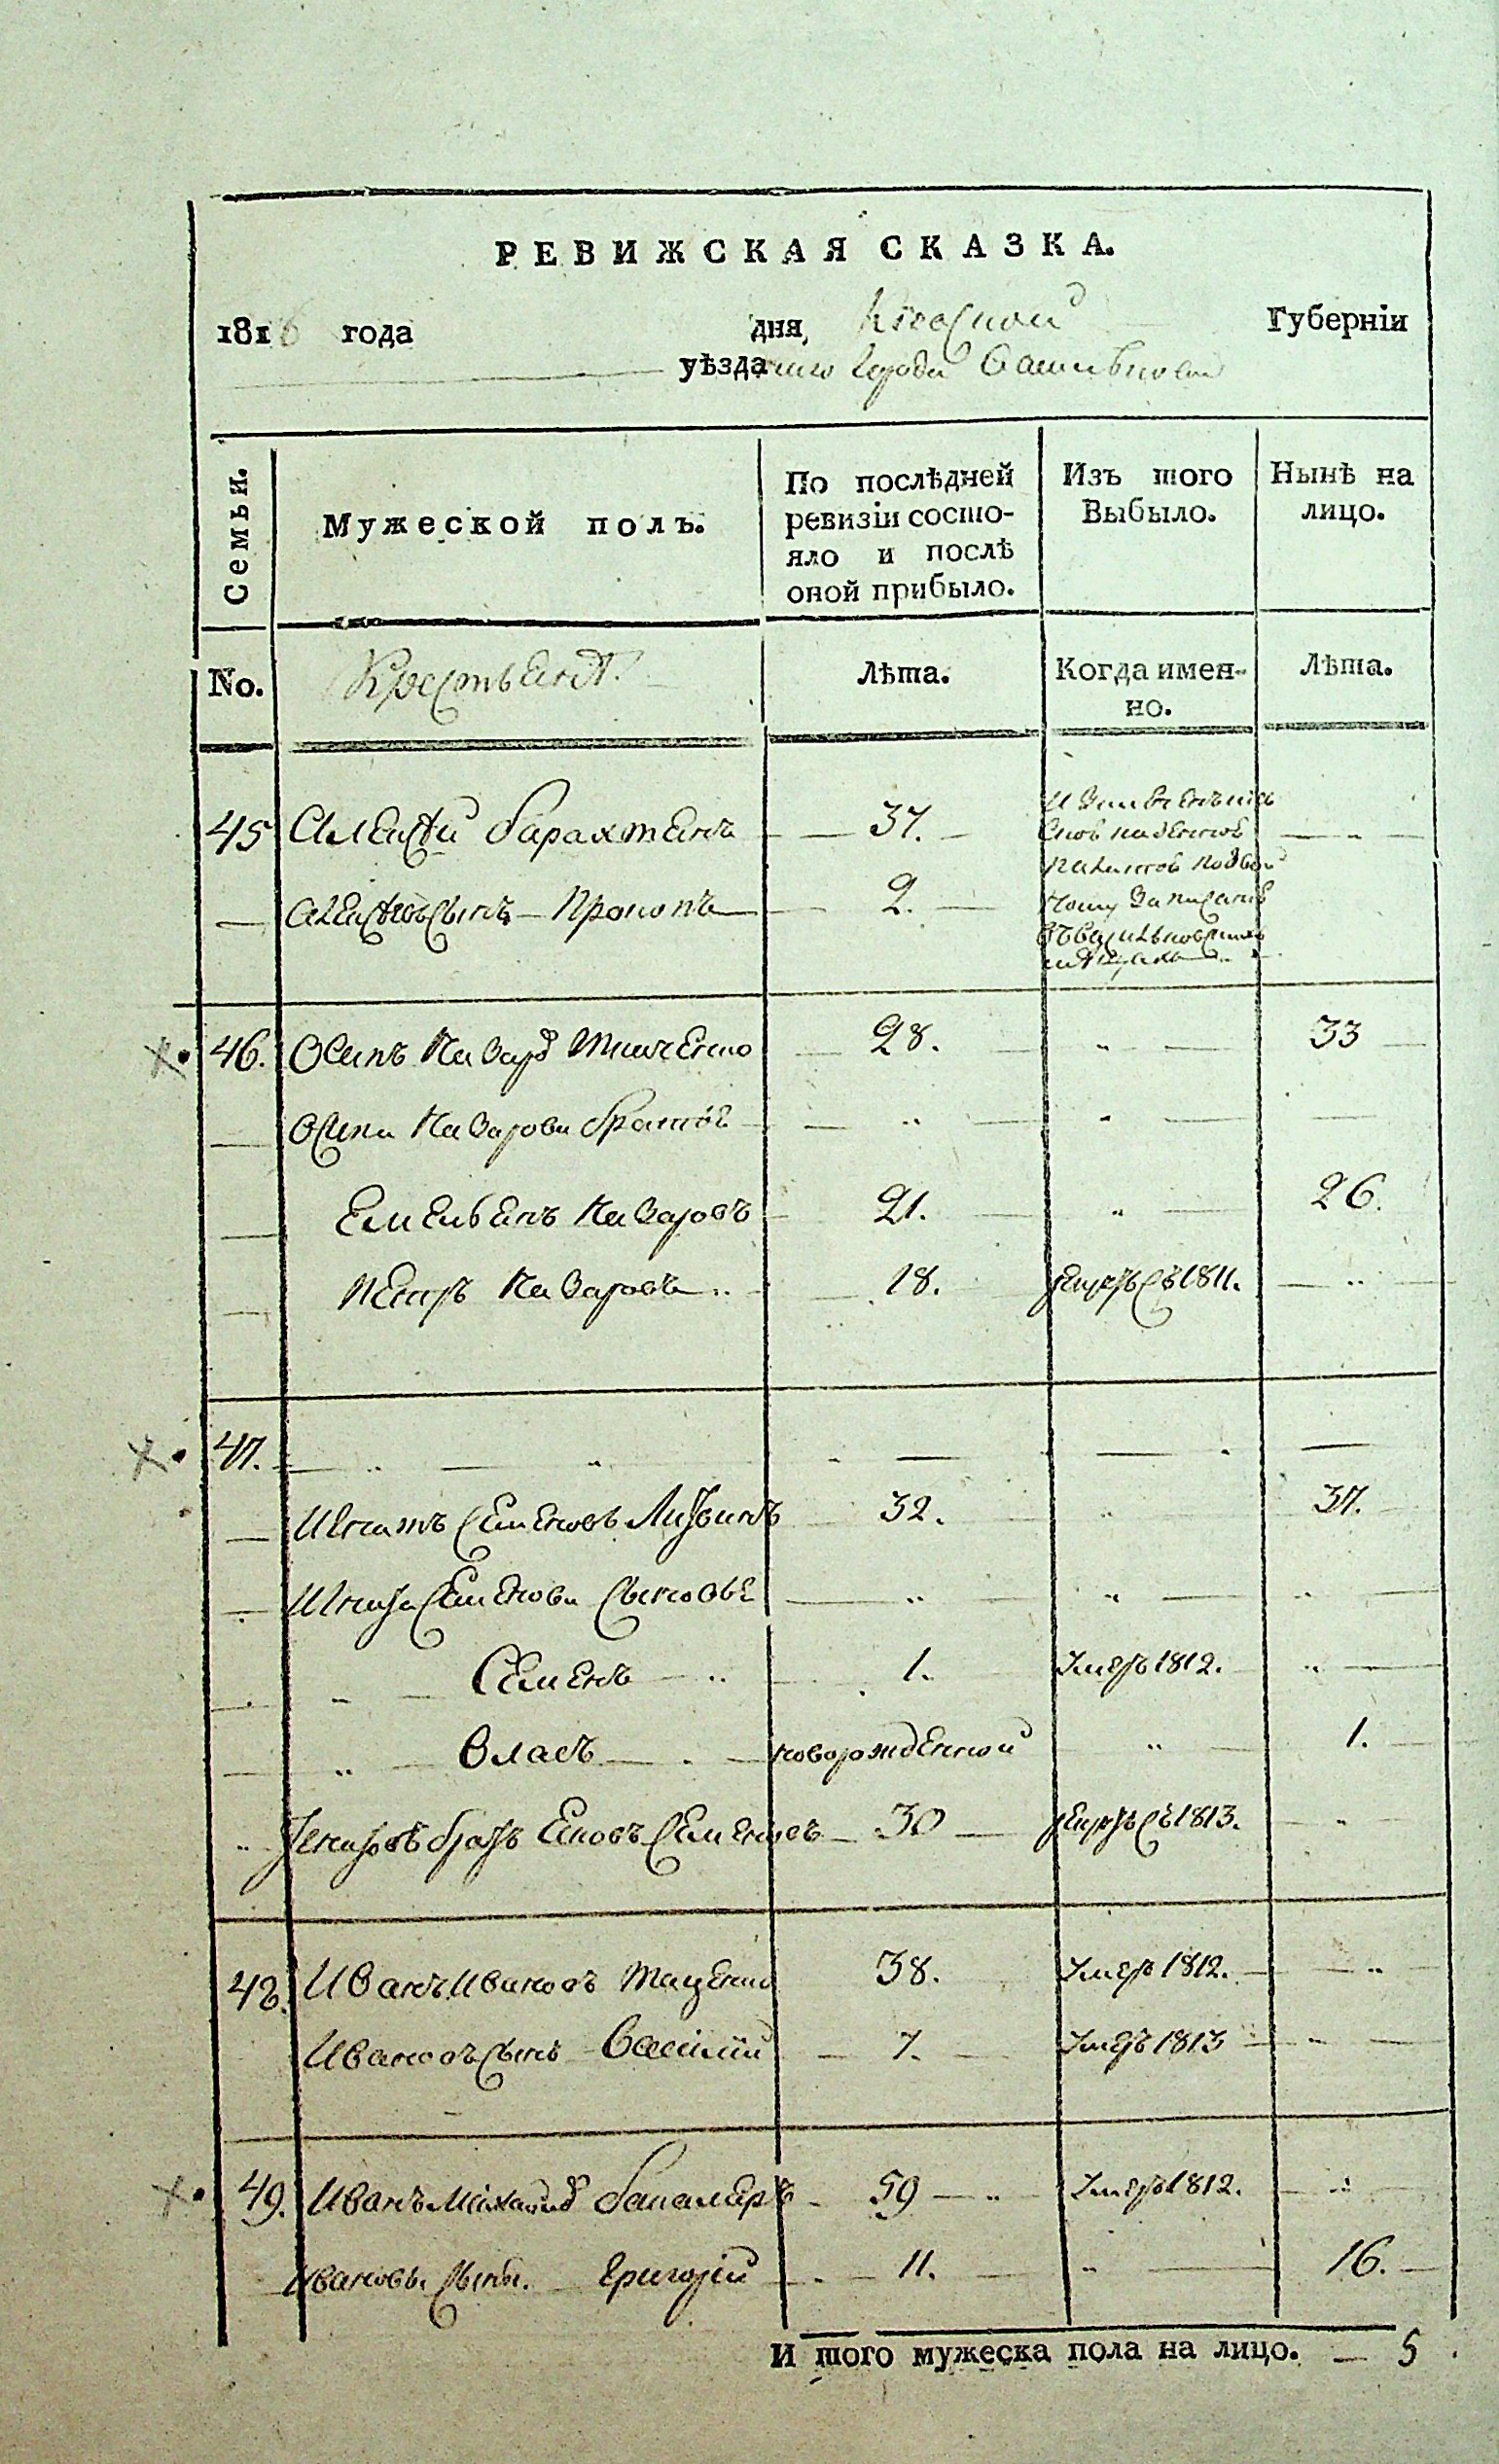 РЕВИЖСКАЯ СКАЗКА.
1816 года дня, Киевской Губерніи
уѣзда города Василькова
Семьи. Мужеской полъ. По послѣдней ревизіи состояло и послѣ оной прибыло. Изъ того Выбыло. Нынѣ на лицо.
No. Крестьянѣ. Лѣта. Когда именно. Лѣта.
45 Алексѣй Барахтянъ 37.
Алексѣевъ сынъ Прокопъ 2.
46. Осипъ Назаровъ Тимченко 28. 33
Осипа Назарова братья
Емельянъ Назаровъ 21. 26.
Петръ Назаровъ 18. рекрутъ съ 1811.
47.
Игнатъ Семеновъ Литвинъ 32. 37.
Игната Семенова сыновья
Семенъ 1. Умеръ 1812.
Власъ новорожденной 1.
Игнатовъ братъ Семеновъ 30 рекрутъ съ 1813.
48. Иванъ Ивановъ Таценко 38. Умеръ 1812.
Ивановъ сынъ Василій 7. Умеръ 1813
49. Иванъ Михайловъ 59 Умеръ 1812.
Ивановъ сынъ. Григорій 11. 16.
И того мужеска пола на лицо. 5